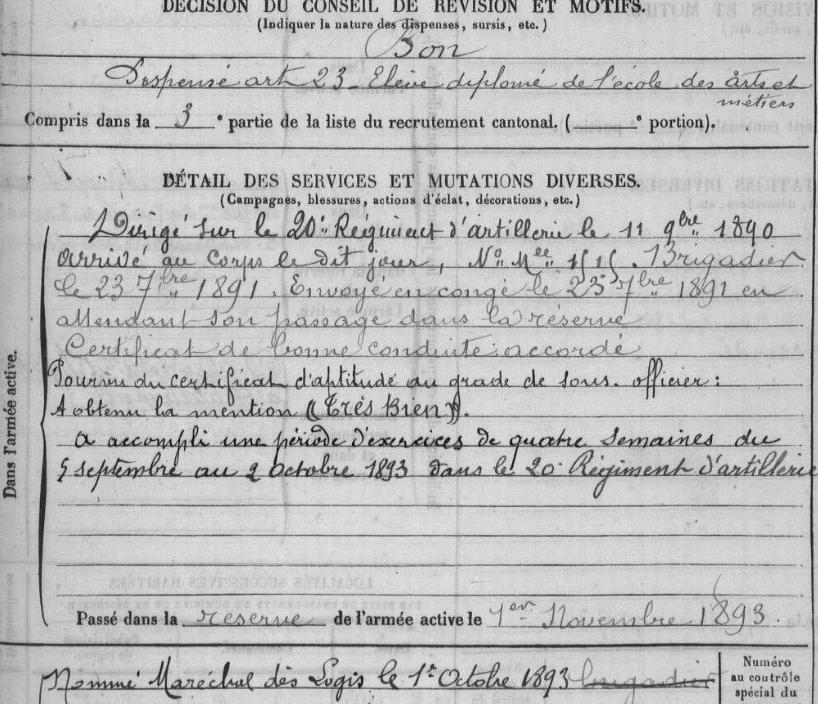 DÉCISION DU CONSEIL DE RÉVISION ET MOTIFS.
(Indiquer la nature des dispenses, sursis, etc.)
Bon
Dispensé art 23 Elève diplomé de l'école des arts et
métiers
Compris dans la 3e partie de la liste du recrutement cantonal. ( e portion).
DÉTAIL DES SERVICES ET MUTATIONS DIVERSES.
(Campagnes, blessures, actions d'éclat, décorations, etc.)
Dirigé sur le 20e Régiment d'artillerie le 11 9bre 1890
arrivé au Corps le dit jour, No Mle 1515. Brigadier
le 23 7bre 1891. Envoyé en congé le 23 7bre 1891 en
attendant son passage dans la réserve
Certificat de bonne conduite accordé
Pourvu du certificat d'aptitude au grade de sous-officier :
A obtenu la mention (Très Bien).
a accompli une période d'exercices de quatre semaines du
5 septembre au 2 octobre 1893 dans le 20e Régiment d'artillerie
Dans l'armée active.
Passé dans la réserve de l'armée active le 1er Novembre 1893.
Nommé Maréchal des Logis le 1er Octobre 1893 brigadier
Numéro
au contrôle
spécial du